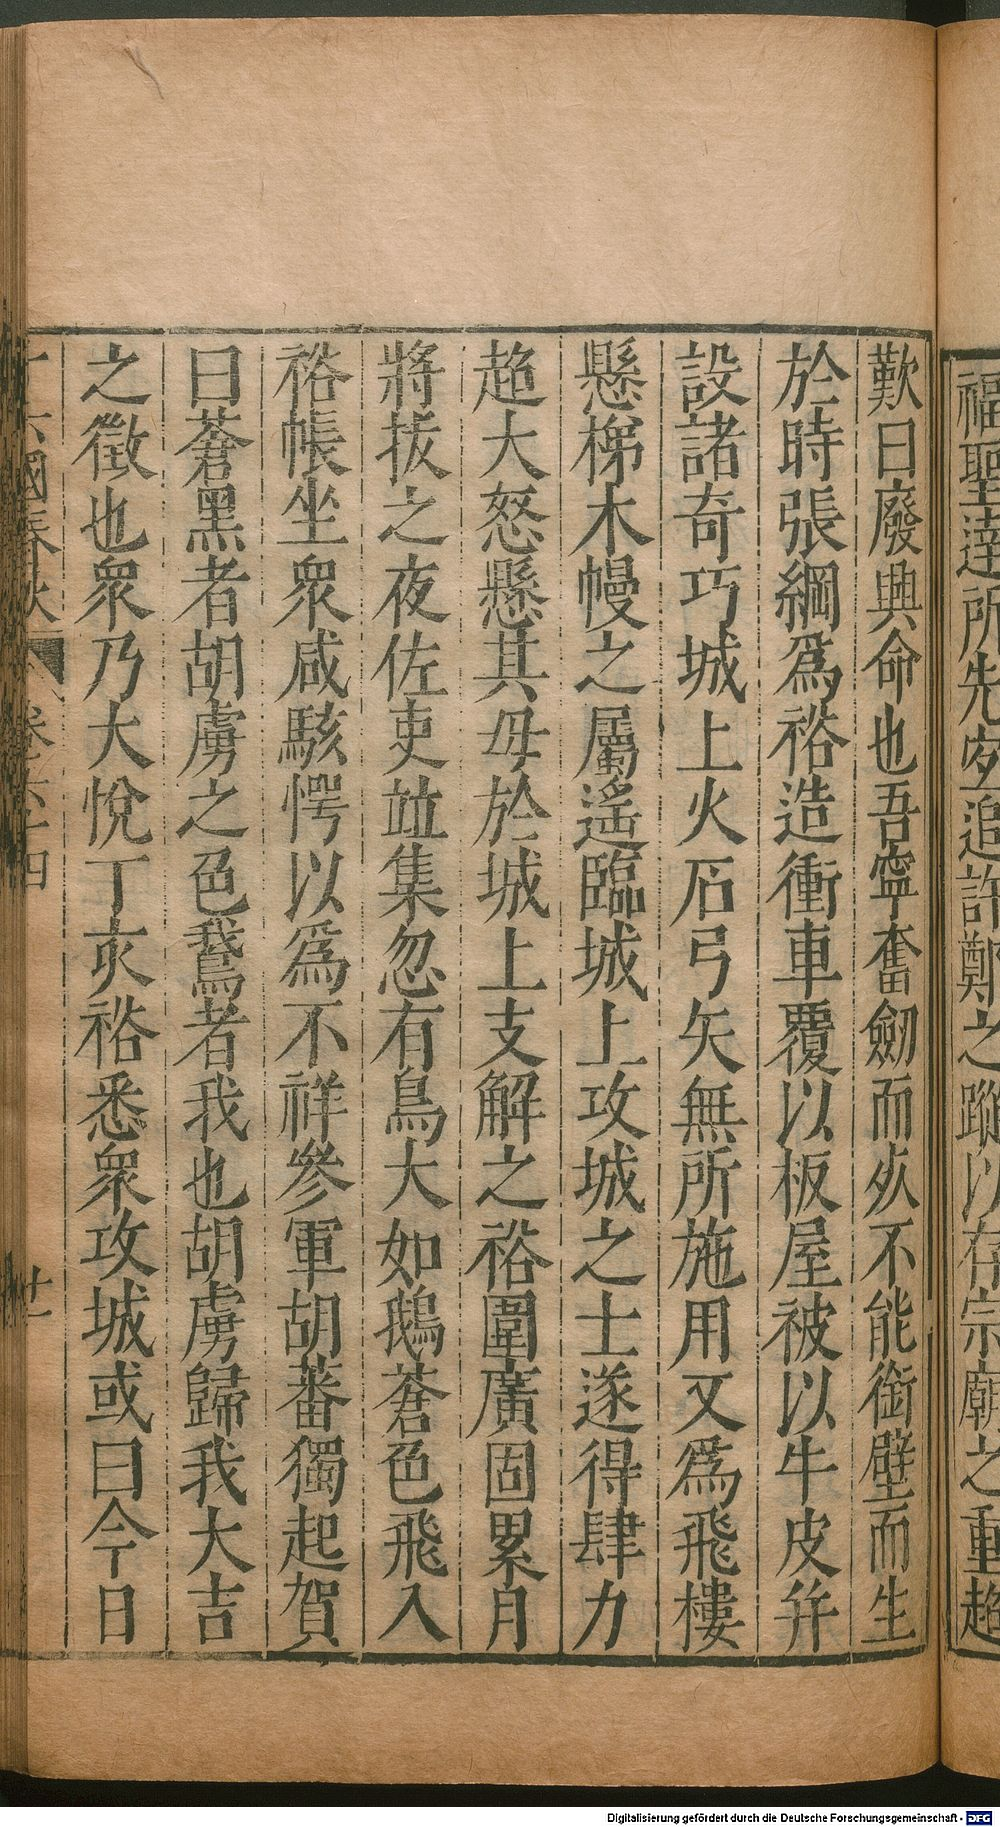 福聖達所先安追許鄭之蹤以存宗廟之重超
歎曰廢興命也吾寧奮劒而死不能銜璧而生
於時張綱爲裕造衝車覆以板屋被以牛皮并
設諸奇巧城上火石弓矢無所施用又爲飛樓
懸梯木幔之屬遙臨城上攻城之士遂得肆力
超大怒懸其母於城上支解之裕圍廣固累月
將拔之夜佐吏竝集忽有鳥大如鵝蒼色飛入
裕帳坐衆咸駭愕以爲不祥參軍胡蕃獨起賀
曰蒼黑者胡虜之色鵞者我也胡虜歸我大吉
之徵也衆乃大悅丁亥裕悉衆攻城或曰今日
十六國春秋 卷六十四 廿一
Digitalisierung gefördert durch die Deutsche Forschungsgemeinschaft - DFG